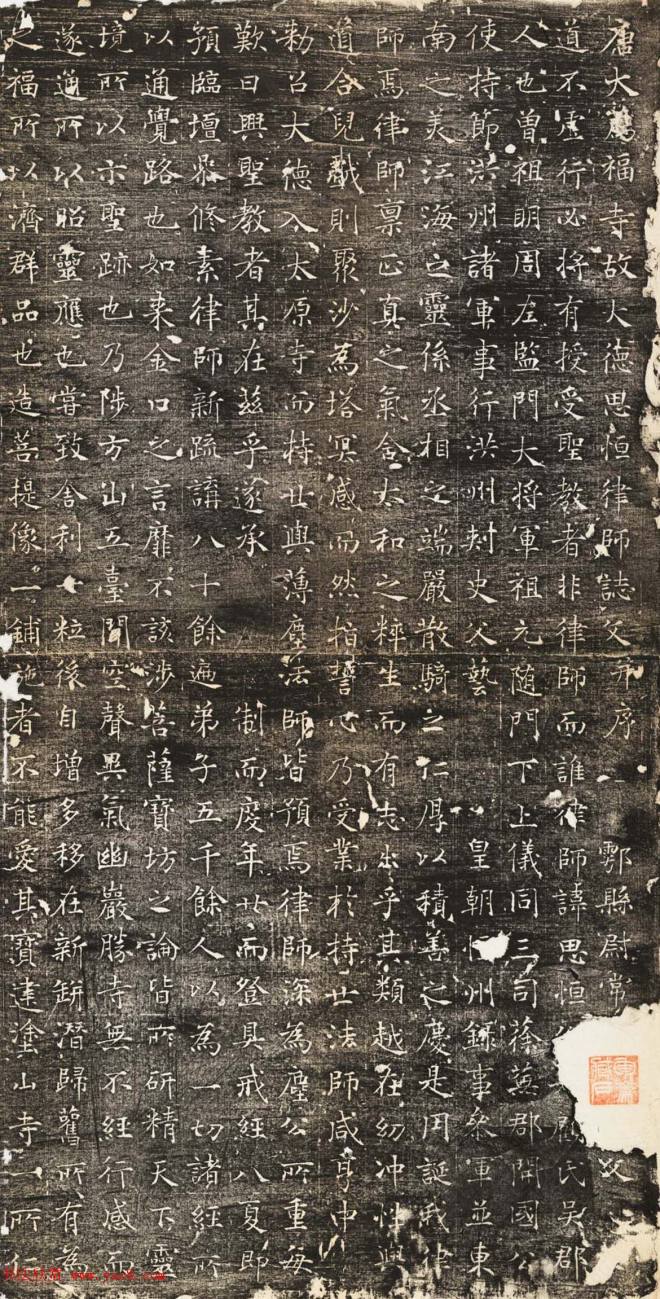 唐大薦福寺故大德思恒律師誌文并序 鄠縣尉常 文
道不虛行必將有授受聖教者非律師而誰律師諱思恒俗 顧氏吳郡
人也曾祖明周左監門大將軍祖元隨門下上儀同三司蒋蕪郡開國公
使持節洪州諸軍事行洪州刾史父藝 皇朝恒州録事叅軍並東
南之美江海之靈係丞相之端嚴散騎之仁厚以積善之慶是用誕我律
師焉律師禀正真之氣含太和之粹生而有志出乎其類越在幼冲性與
道合兒戲則聚沙為塔冥感而然指誓心乃受業於持世法師咸亨中
勑召大德入太原寺而持世與薄塵法師皆預焉律師深為塵公所重每
歎曰興聖教者其在兹乎遂承 制而度年廿而登具戒經八夏即
預臨壇参修素律師新疏講八十餘遍弟子五千餘人以為一切諸經所
以通覺路也如来金口之言靡不該涉菩薩寶坊之論皆所研精天下靈
境所以示聖跡也乃陟方山五臺聞空聲異氣幽巖勝寺無不經行感而
遂通所以昭靈應也嘗致舍利一粒後自增多移在新缾潜歸舊所有為
之福所以濟群品也造菩提像一鋪施者不能愛其寶建塗山寺一所仁
www.yac8.com